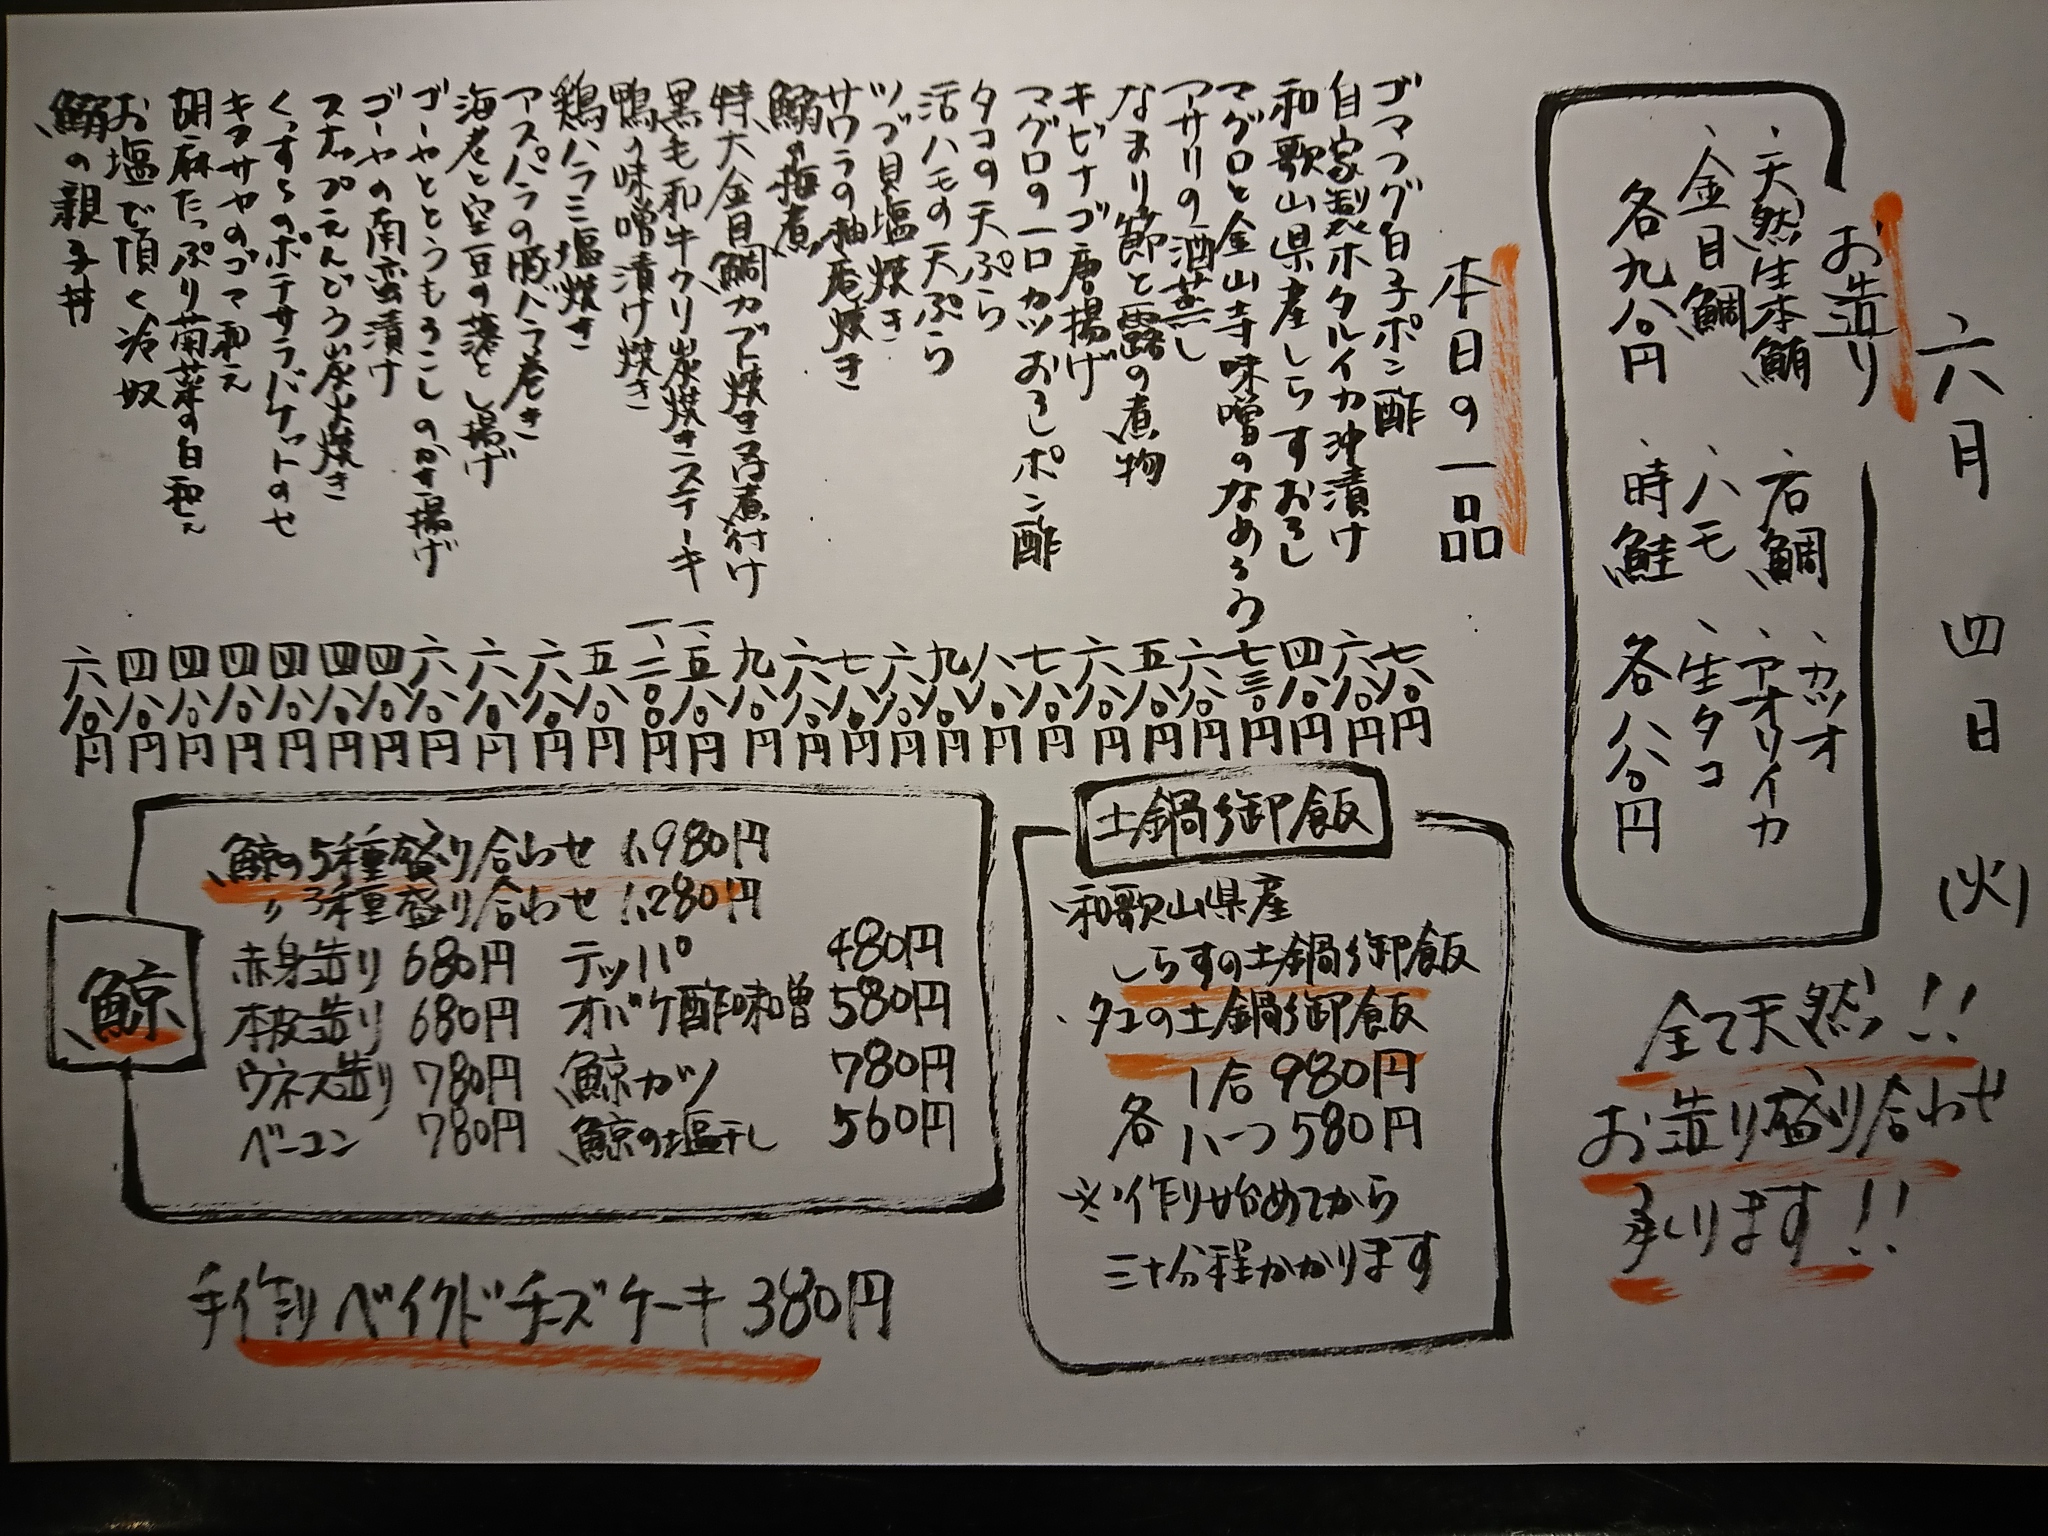 六月四日(火)
お造り
、天然生本鮪
、金目鯛
各九八〇円
、カツオ
、石鯛、アオリイカ
、ハモ、生タコ
、時鮭各八八〇円
全て天然!!
お造り盛り合わせ
承ります!!
本日の一品
ゴマフグ白子ポン酢 七八〇円
自家製ホタルイカ沖漬け 六八〇円
和歌山県産しらすおろし 四八〇円
マグロと金山寺味噌のなめろう 七三〇円
アサリの酒蒸し 六八〇円
なまり節と蕗の煮物 五八〇円
キビナゴ唐揚げ 六八〇円
マグロの一口カツおろしポン酢 七八〇円
タコの天ぷら 八八〇円
活ハモの天ぷら 九八〇円
ツブ貝塩焼き 六八〇円
サワラの柚庵焼き 七八〇円
鰯の梅煮 六八〇円
特大金目鯛カブト焼き又は煮付け 九八〇円
黒毛和牛クリ炭焼きステーキ 一、五八〇円
鴨の味噌漬け焼き 一、二八〇円
鶏ハラミ塩焼き 五八〇円
アスパラの豚バラ巻き 六八〇円
海老と空豆の落とし揚げ 六八〇円
ゴーヤととうもろこしのかき揚げ 六八〇円
ゴーヤの南蛮漬け 四八〇円
スナップえんどう炭火焼き 四八〇円
のポテサラバケットのせ 四八〇円
キヌサヤのゴマ和え 四八〇円
胡麻たっぷり菊菜の白和え 四八〇円
お塩で頂く冷奴 四八〇円
鰯の親子丼 六八〇円
土鍋御飯
・和歌山県産
しらすの土鍋御飯
・タコの土鍋御飯
各 1合 980円
ハーフ 580円
※作り始めてから
三十分程かかります
鯨
鯨の5種盛り合わせ 1,980円
〃 3種盛り合わせ 1,280円
赤身造り 680円 テッパ 480円
本皮造り 680円 オバケ酢味噌 580円
ウネス造り 780円 鯨カツ 780円
ベーコン 780円 鯨の塩干し 560円
手作りベイクドチーズケーキ 380円